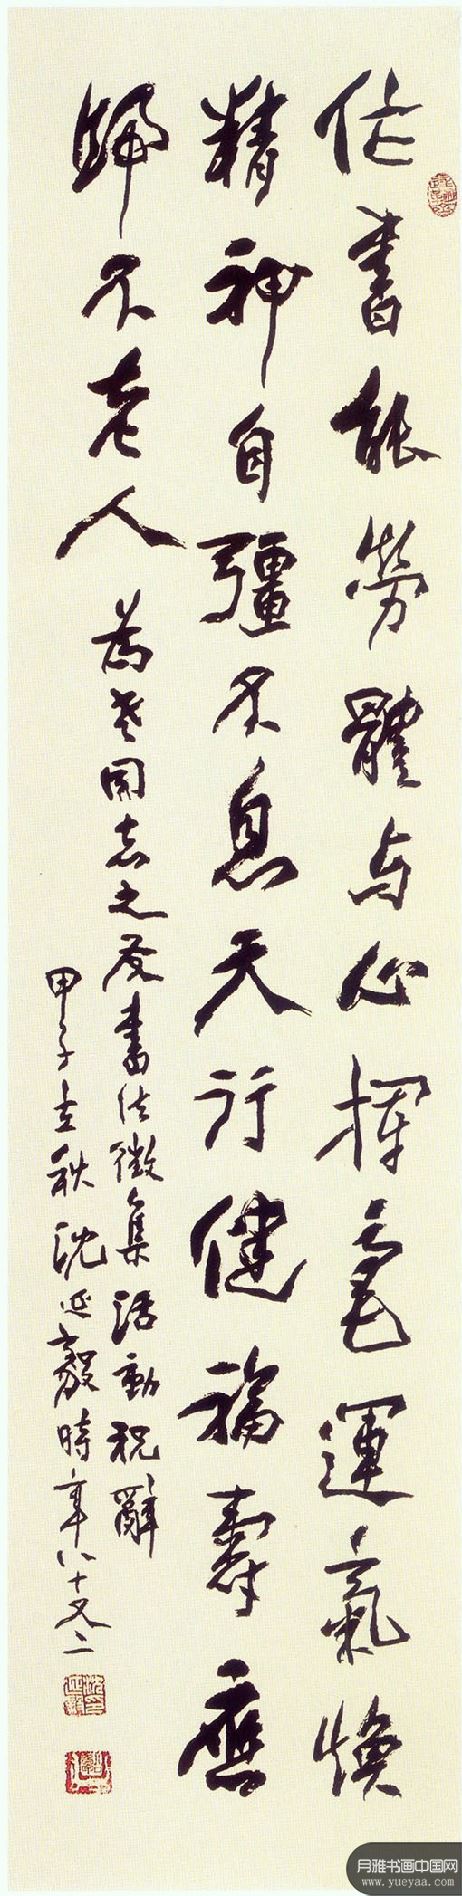 作書能勞體与心揮毫運氣煥
精神自彊不息天行健福壽應
歸不老人
為老同志之友書法徵集活動祝辭
甲子立秋沈延毅時年八十又二
月雅书画中国网
www.yueyaa.com